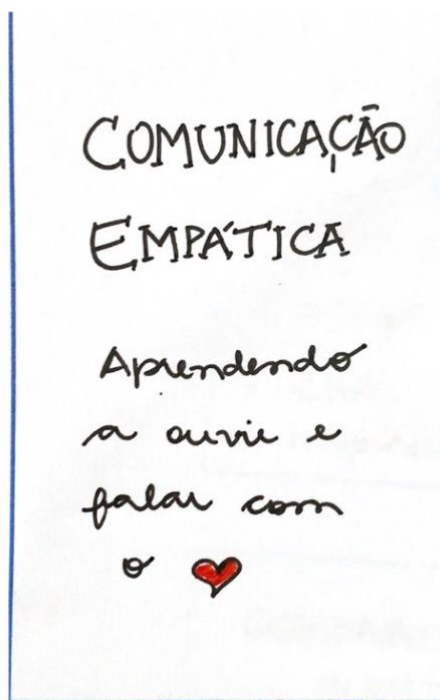 COMUNICAÇÃO
EMPÁTICA
Aprendendo
a ouvir e
falar com
o ❤